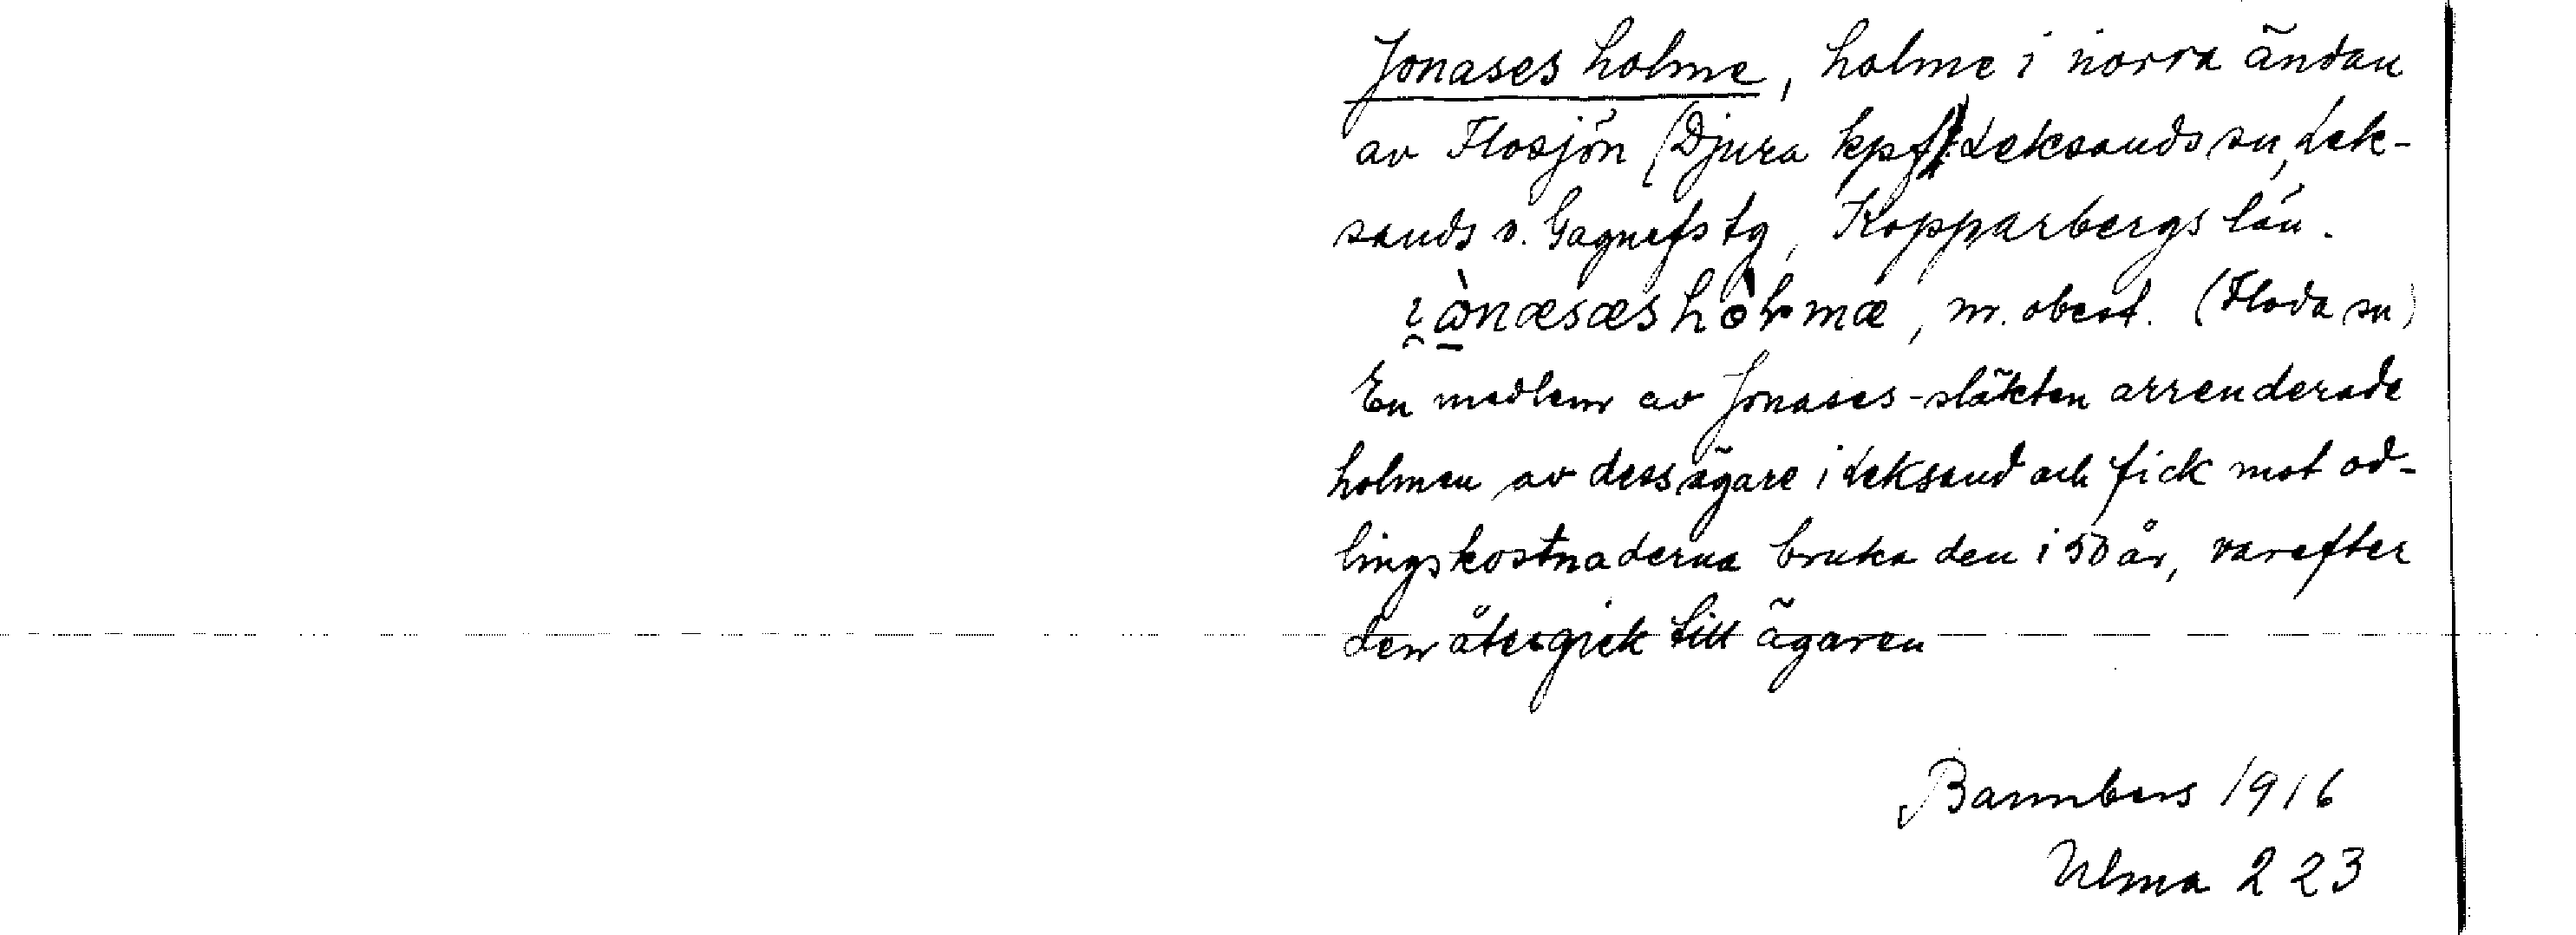 Jonases holme, holme i norra ändan
av Flosjön (Djura kpf) Leksands sn, Lek-
sands o. Gagnefs tg, Kopparbergs län.
m. obest. (Floda sn)
En medlem av Jonases-släkten arrenderade
holmen av dess ägare i Leksand och fick mot od-
lingskostnaderna bruka den i 50 år, varefter
den återgick till ägaren
1916
Ulma 223